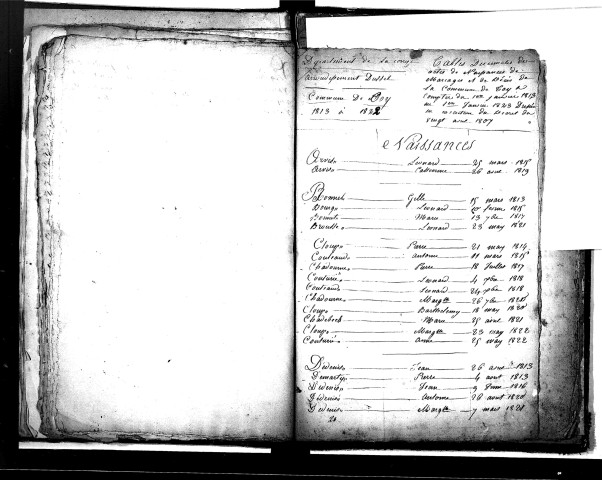 Département de la
arrondissement Dussel
Commune De Coy
1813 à 1822
Tables Decennales des
actes de Naissances de
Mariages et de Décès de
La Commune de Coy a
Compter du 1er janvier 1813
au 1er Janvier 1823
en execution du Decret du
vingt 1807
Naissances
Arvis Leonard 25 mars 1815
Arvis Catherine 26 1819
Bonnet Gille 15 mars 1813
Bourg Leonard 1815
Bonnet Marie 13 7bre 1817
Leonard 23 may 1821
Cloup Pierre 21 may 1814
Couteaud Antoine 11 mars 1815
Chadourne Pierre 18 Juillet 1817
Couturie Leonard 4 1818
Couteaud Leonard 24 1818
Chadourne Margte 26 7bre 1820
Cloup Barthelemy 18 may 1820
Marie 25 aout 1821
Cloup Margte 23 may 1822
Couturie Anne 25 may 1822
Dedenis Jean 26 1813
Demarty Pierre 4 aout 1813
Dedenis Jean 9 1816
Dedenis Antoine 26 aout 1820
Dedenis Margte 7 mars 1821